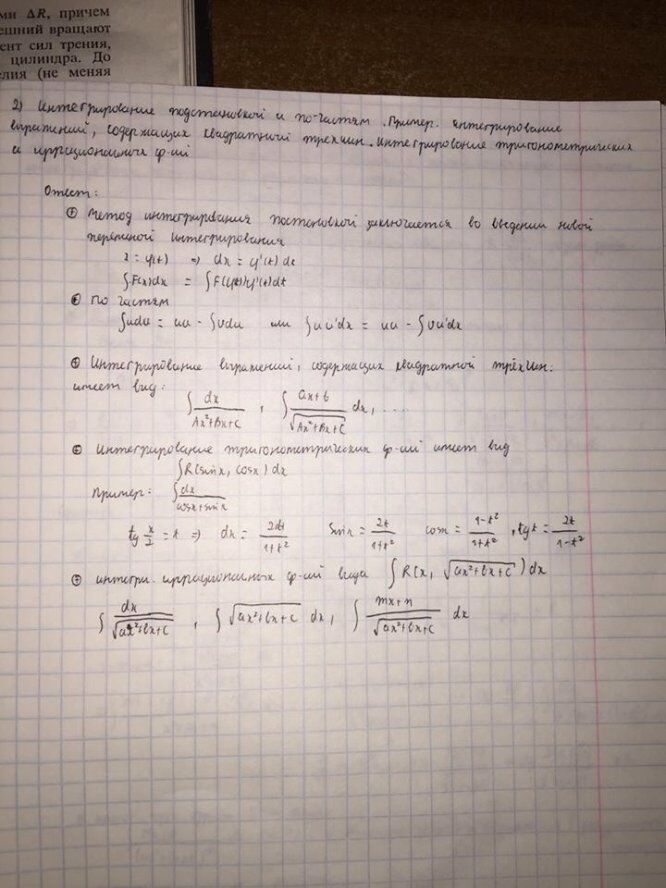 ми ΔR, причем
ешний вращают
ент сил трения,
цилиндра. До
елия (не меняя
2) Интегрирование подстановкой и по-частям. Пример. интегрирование
выражений, содержащих квадратный трёхчлен. Интегрирование тригонометрических
и иррациональных ф-ий
Ответ:
Метод интегрирвания постановкой заключается во введении новой
переменой интегрирования
x = φ(t) ⇒ dx = φ'(t) dt
∫F(x)dx = ∫F(φ(t))φ'(t)dt
по частям
∫udu = uu - ∫udu или ∫uu'dx = uu - ∫uu'dx
Интегрирование выражений, содержащих квадратной трёхчлен:
имеет вид:
∫ dx/(Ax²+Bx+C) , ∫ (ax+b)/√(Ax²+Bx+C) dx, ....
Интегрирование тригонометрических ф-ий имеет вид
∫R(sinx, cosx) dx
Пример: ∫ dx/(cosx+sinx)
tg x/2 = t ⇒ dx = 2dt/(1+t²) sinx = 2t/(1+t²) cosx = (1-t²)/(1+t²) , tgx = 2t/(1-t²)
интегр. иррациональных ф-ий вида ∫ R(x, √(ax²+bx+c)) dx
∫ dx/√(ax²+bx+c) , ∫ √(ax²+bx+c) dx, ∫ (mx+n)/√(ax²+bx+c) dx